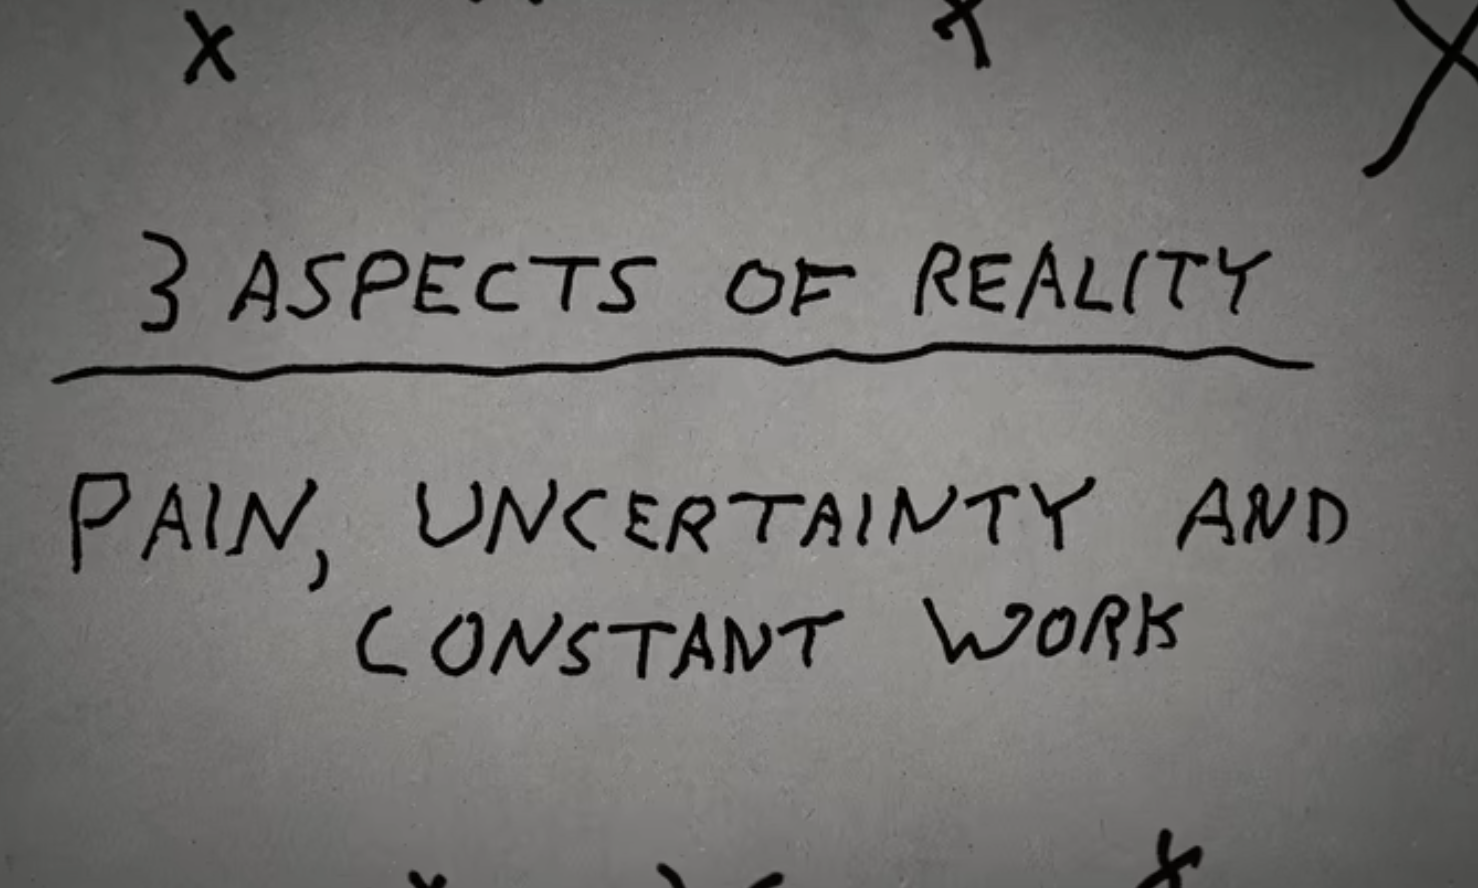 X
3 ASPECTS OF REALITY
PAIN, UNCERTAINTY AND
CONSTANT WORK